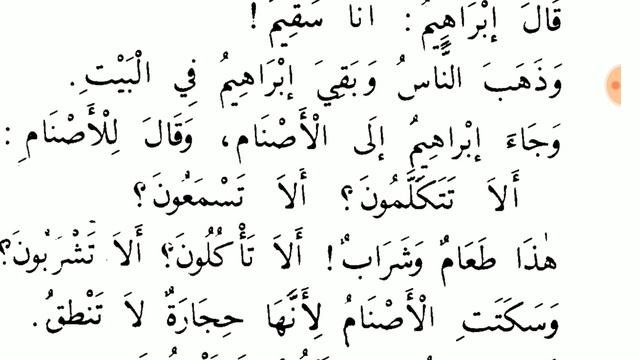 قَالَ إبْرَاهِيمُ: أنَا سَقِيمٌ!
وَذَهَبَ النَّاسُ وَبَقِيَ إبْرَاهِيمُ فِي الْبَيْتِ.
وَجَاءَ إبْراهِيمُ إلَى الْأَصْنَامِ، وَقَالَ لِلْأَصْنَامِ:
أَلاَ تَتَكَلَّمُونَ؟ أَلاَ تَسْمَعُونَ؟
هٰذَا طَعَامٌ وَشَرَابٌ! أَلاَ تَأْكُلُونَ؟ أَلاَ تَشْرَبُونَ؟
وَسَكَتَتِ الْأَصْنَامُ لِأَنَّهَا حِجَارَةٌ لاَ تَنْطِقُ.